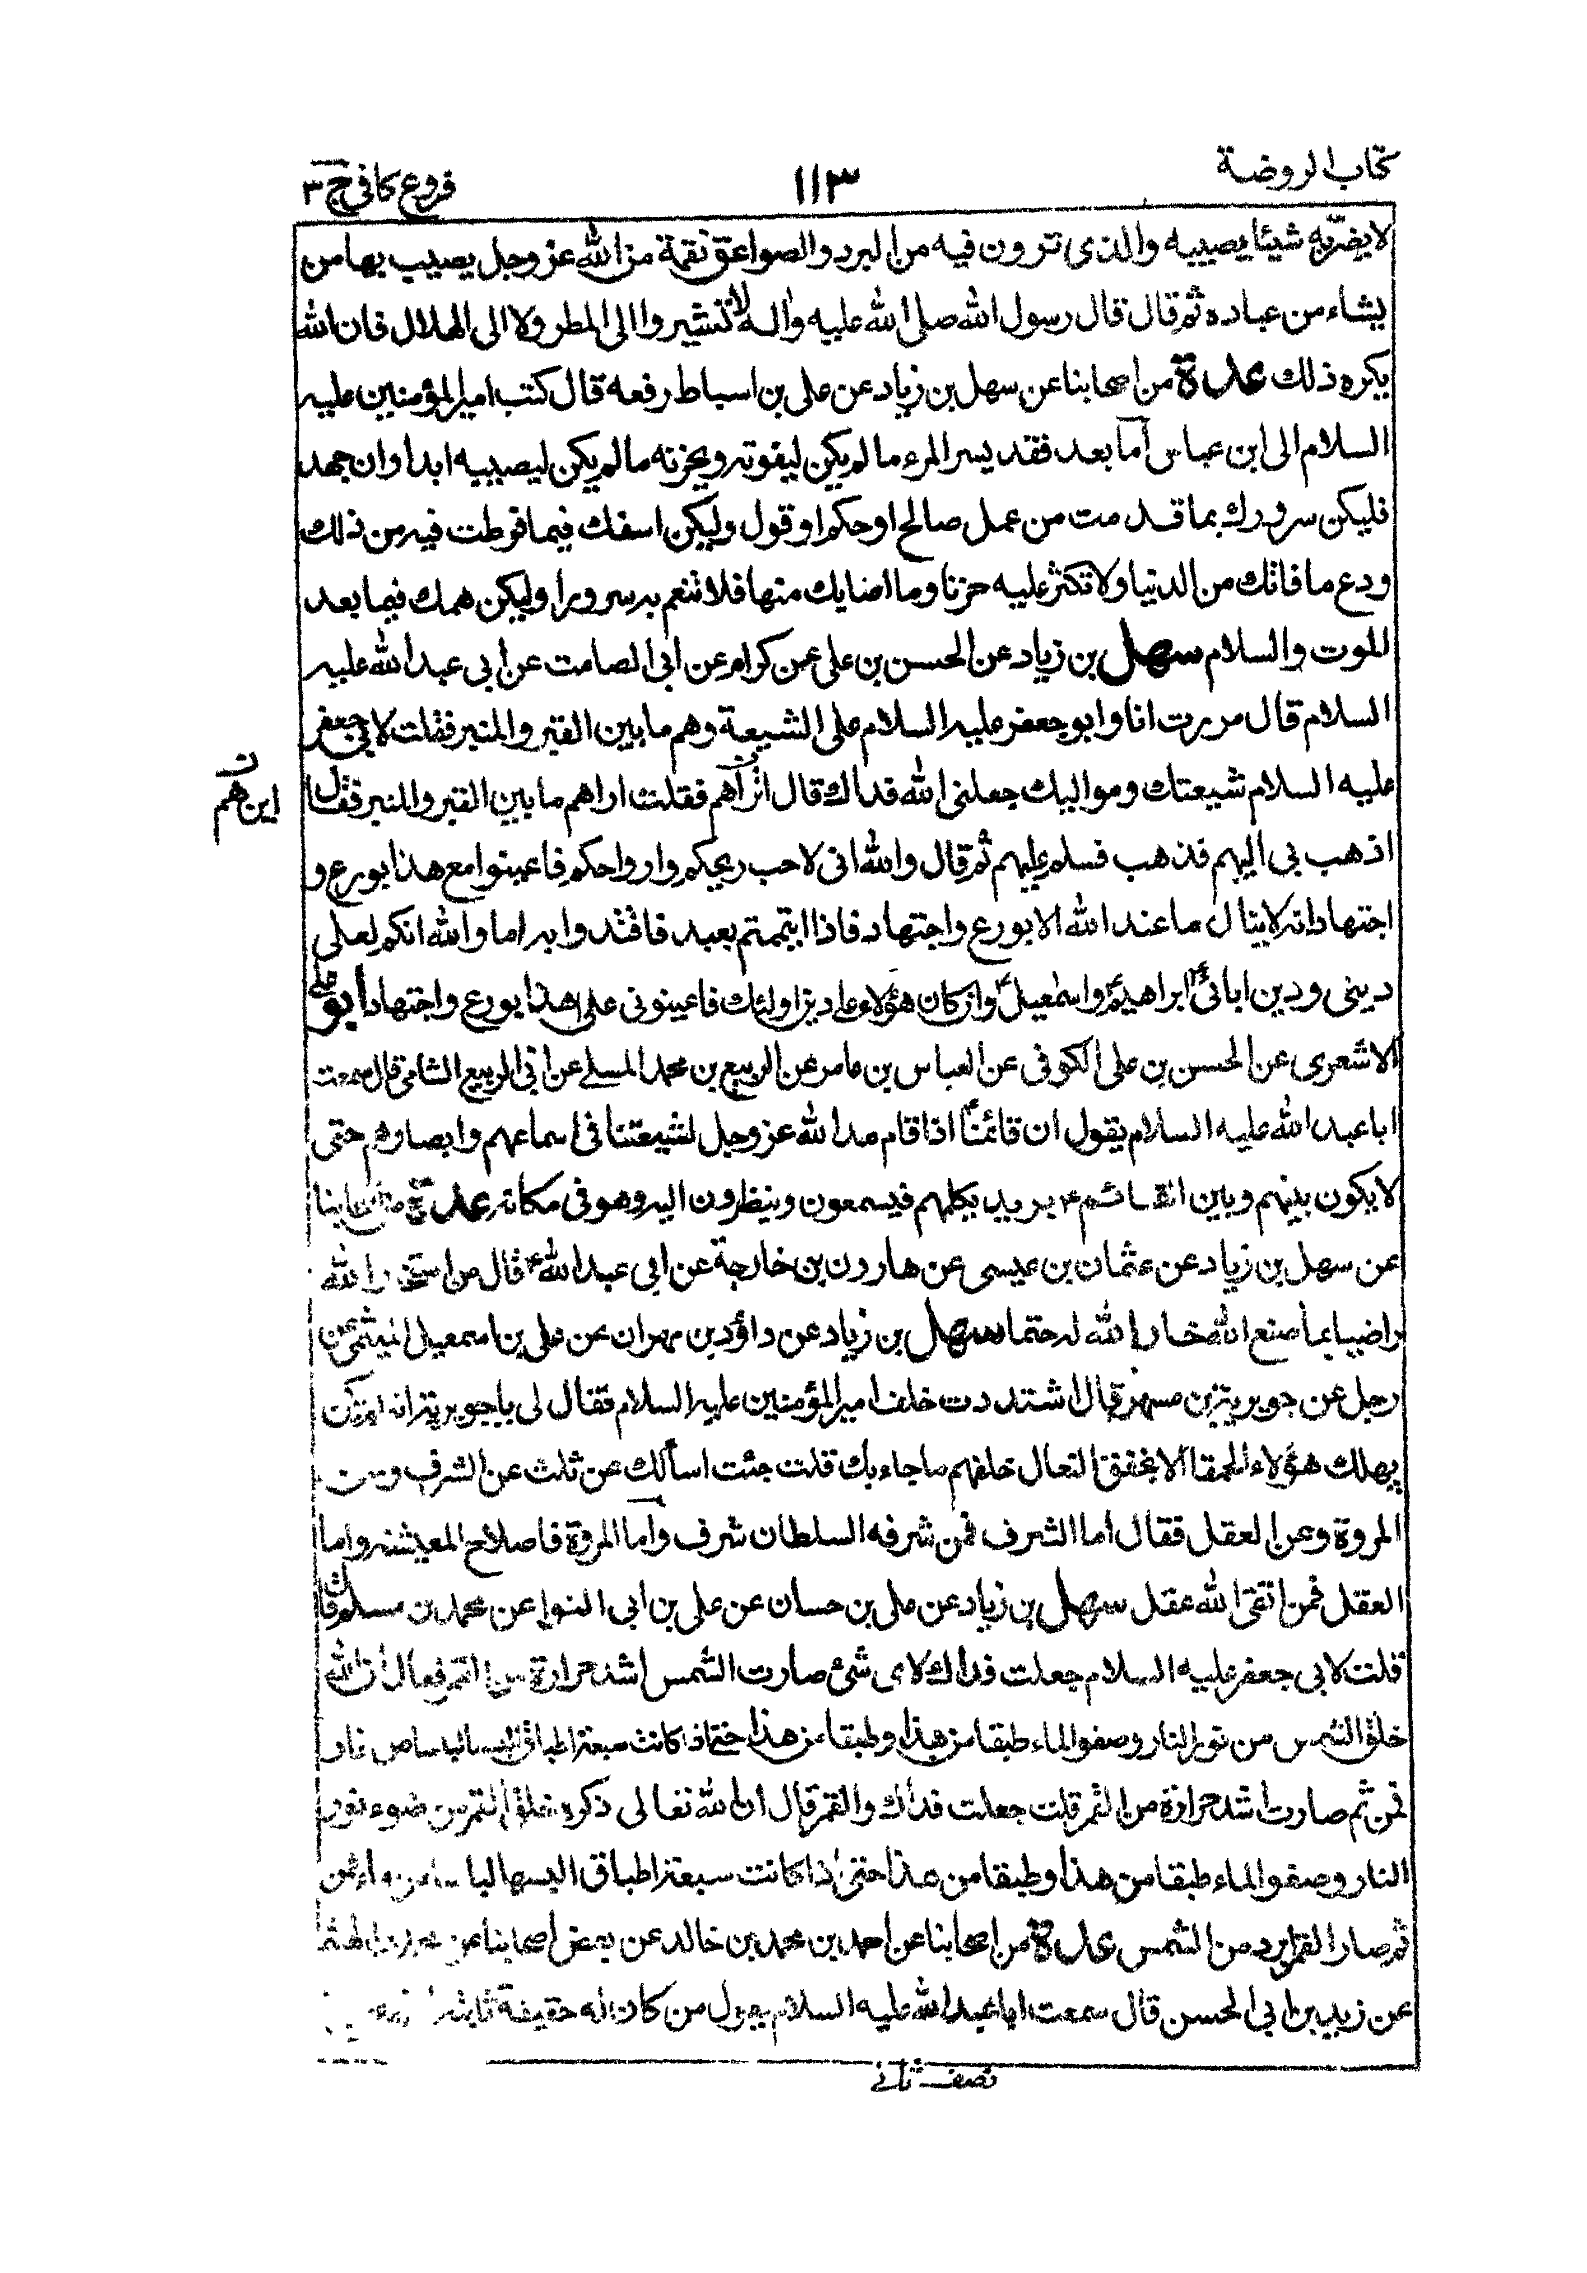 كتاب الروضة ١١٣ فروع كافي ج ٣
لا يضر به شيئا يصيبه والذى ترون فيه من البرد والصواعق نقمة من الله عز وجل يصيب بها من
يشاء من عباده ثم قال قال رسول الله صلى الله عليه واله لا تشيروا الى المطر ولا الى الهلال فان الله
يكره ذلك عدة من اصحابنا عن سهل بن زياد عن على بن اسباط رفعه قال كتب امير المؤمنين عليه
السلام الى ابن عباس اما بعد فقد يسر المرء ما لم يكن ليفوته ويحزنه ما لم يكن ليصيبه ابدا وان جهد
فليكن سرورك بما قدمت من عمل صالح او حكم او قول وليكن اسفك فيما فرطت فيه من ذلك
ودع ما فاتك من الدنيا ولا تكثر عليه حزنا وما اصابك منها فلا تنعم به سرورا وليكن همك فيما بعد
الموت والسلام سهل بن زياد عن الحسن بن على عن كرام عن ابى الصامت عن ابى عبد الله عليه
السلام قال مررت انا وابو جعفر عليه السلام على الشيعة وهم ما بين القبر والمنبر فقلت لابى جعفر
عليه السلام شيعتك ومواليك جعلنى الله فداك قال اتراهم فقلت اراهم ما بين القبر والمنبر فقال
اين هم ن
اذهب بى اليهم فذهب فسلم عليهم ثم قال والله انى لاحب ريحكم وارواحكم فاعينوا مع هذا بورع و
اجتهاد انه لا ينال ما عند الله الا بورع واجتهاد فاذا ايتممتم بعبد فاقتدوا به اما والله انكم لعلى
دينى ودين ابائى ابراهيم واسمعيل وان كان هؤلاء على دين اولئك فاعينونى على هذا بورع واجتهاد ابو على
الاشعرى عن الحسن بن على الكوفى عن العباس بن عامر عن الربيع بن محمد المسلى عن ابى الربيع الشامى قال سمعت
ابا عبد الله عليه السلام يقول ان قائمنا اذا قام مد الله عز وجل لشيعتنا فى اسماعهم وابصارهم حتى
لا يكون بينهم وبين القائم ع بريد يكلمهم فيسمعون وينظرون اليه وهو فى مكانه عدة من اصحابنا
عن سهل بن زياد عن عثمان بن عيسى عن هارون بن خارجة عن ابى عبد الله ع قال من استخار الله
راضيا بما صنع الله خار الله له حتما سهل بن زياد عن داؤد بن مهران عن على بن اسمعيل الميثمى عن
رجل عن جويرية بن مسهر قال اشتددت خلف امير المؤمنين عليه السلام فقال لى يا جويرية انه لم
يهلك هؤلاء الحمقا الا بخفق النعال خلفهم ما جاء بك قلت جئت اسألك عن ثلث عن الشرف وعن
المروة وعن العقل فقال اما الشرف فمن شرفه السلطان شرف واما المروة فاصلاح المعيشة واما
العقل فمن اتقى الله عقل سهل بن زياد عن على بن حسان عن على بن ابى النوار عن محمد بن مسلم قال
قلت لابى جعفر عليه السلام جعلت فداك لاى شئ صارت الشمس اشد حرارة من القمر فقال ان الله
خلق الشمس من نور النار وصفو الماء طبقا من هذا وطبقا من هذا حتى اذا كانت سبعة اطباق البسها لباسا من نار
فمن ثم صارت اشد حرارة من القمر قلت جعلت فداك والقمر قال ان الله تعالى ذكره خلق القمر من ضوء نور
النار وصفو الماء طبقا من هذا وطبقا من هذا حتى اذا كانت سبعة اطباق البسها لباسا من ماء فمن
ثم صار القمر ابرد من الشمس عدة من اصحابنا عن احمد بن محمد بن خالد عن بعض اصحابنا عن محمد بن الهيثم
عن زيد بن ابى الحسن قال سمعت ابا عبد الله عليه السلام يقول من كان له حقيقة ثابتة
نصف ثانى